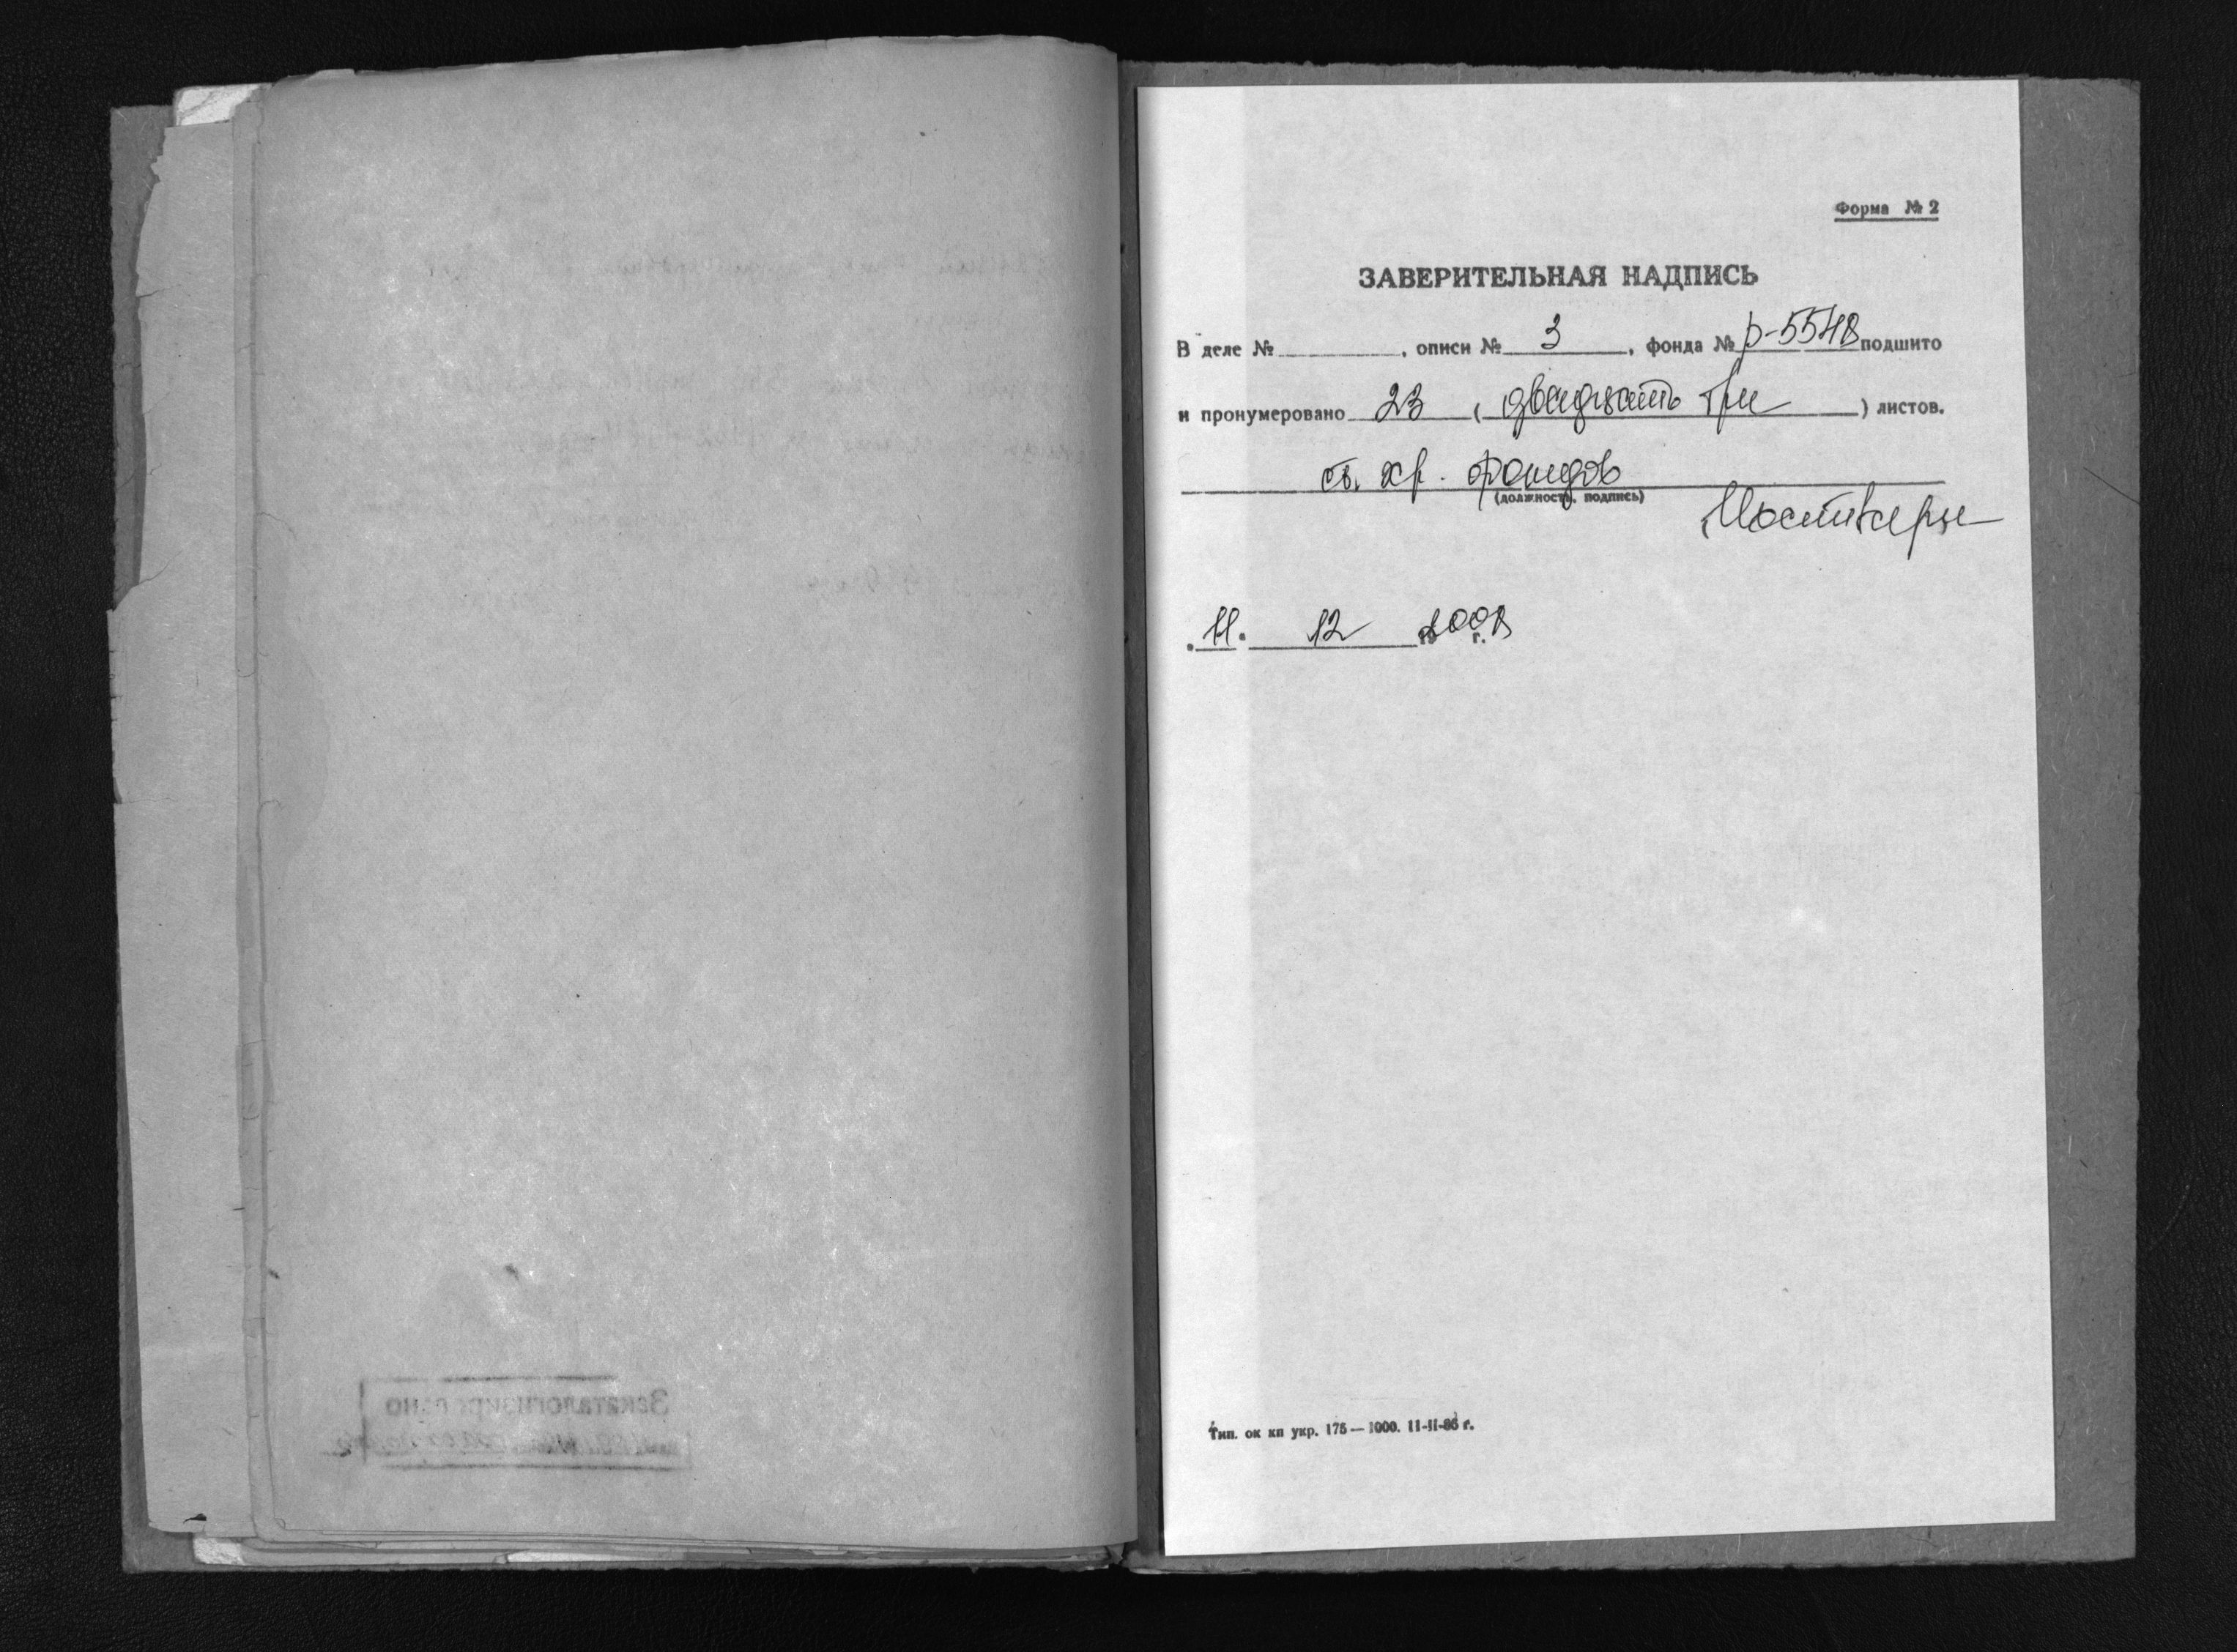 Форма № 2
ЗАВЕРИТЕЛЬНАЯ НАДПИСЬ
В деле № , описи № 3 , фонда № р-5548 подшито
и пронумеровано 23 ( двадцать три ) листов.
ст. хр. фондов
(должность, подпись)
11. 12 2008 г.
Закаталогизировано
Тип. ок кп укр. 175 — 1000. 11-II-86 г.